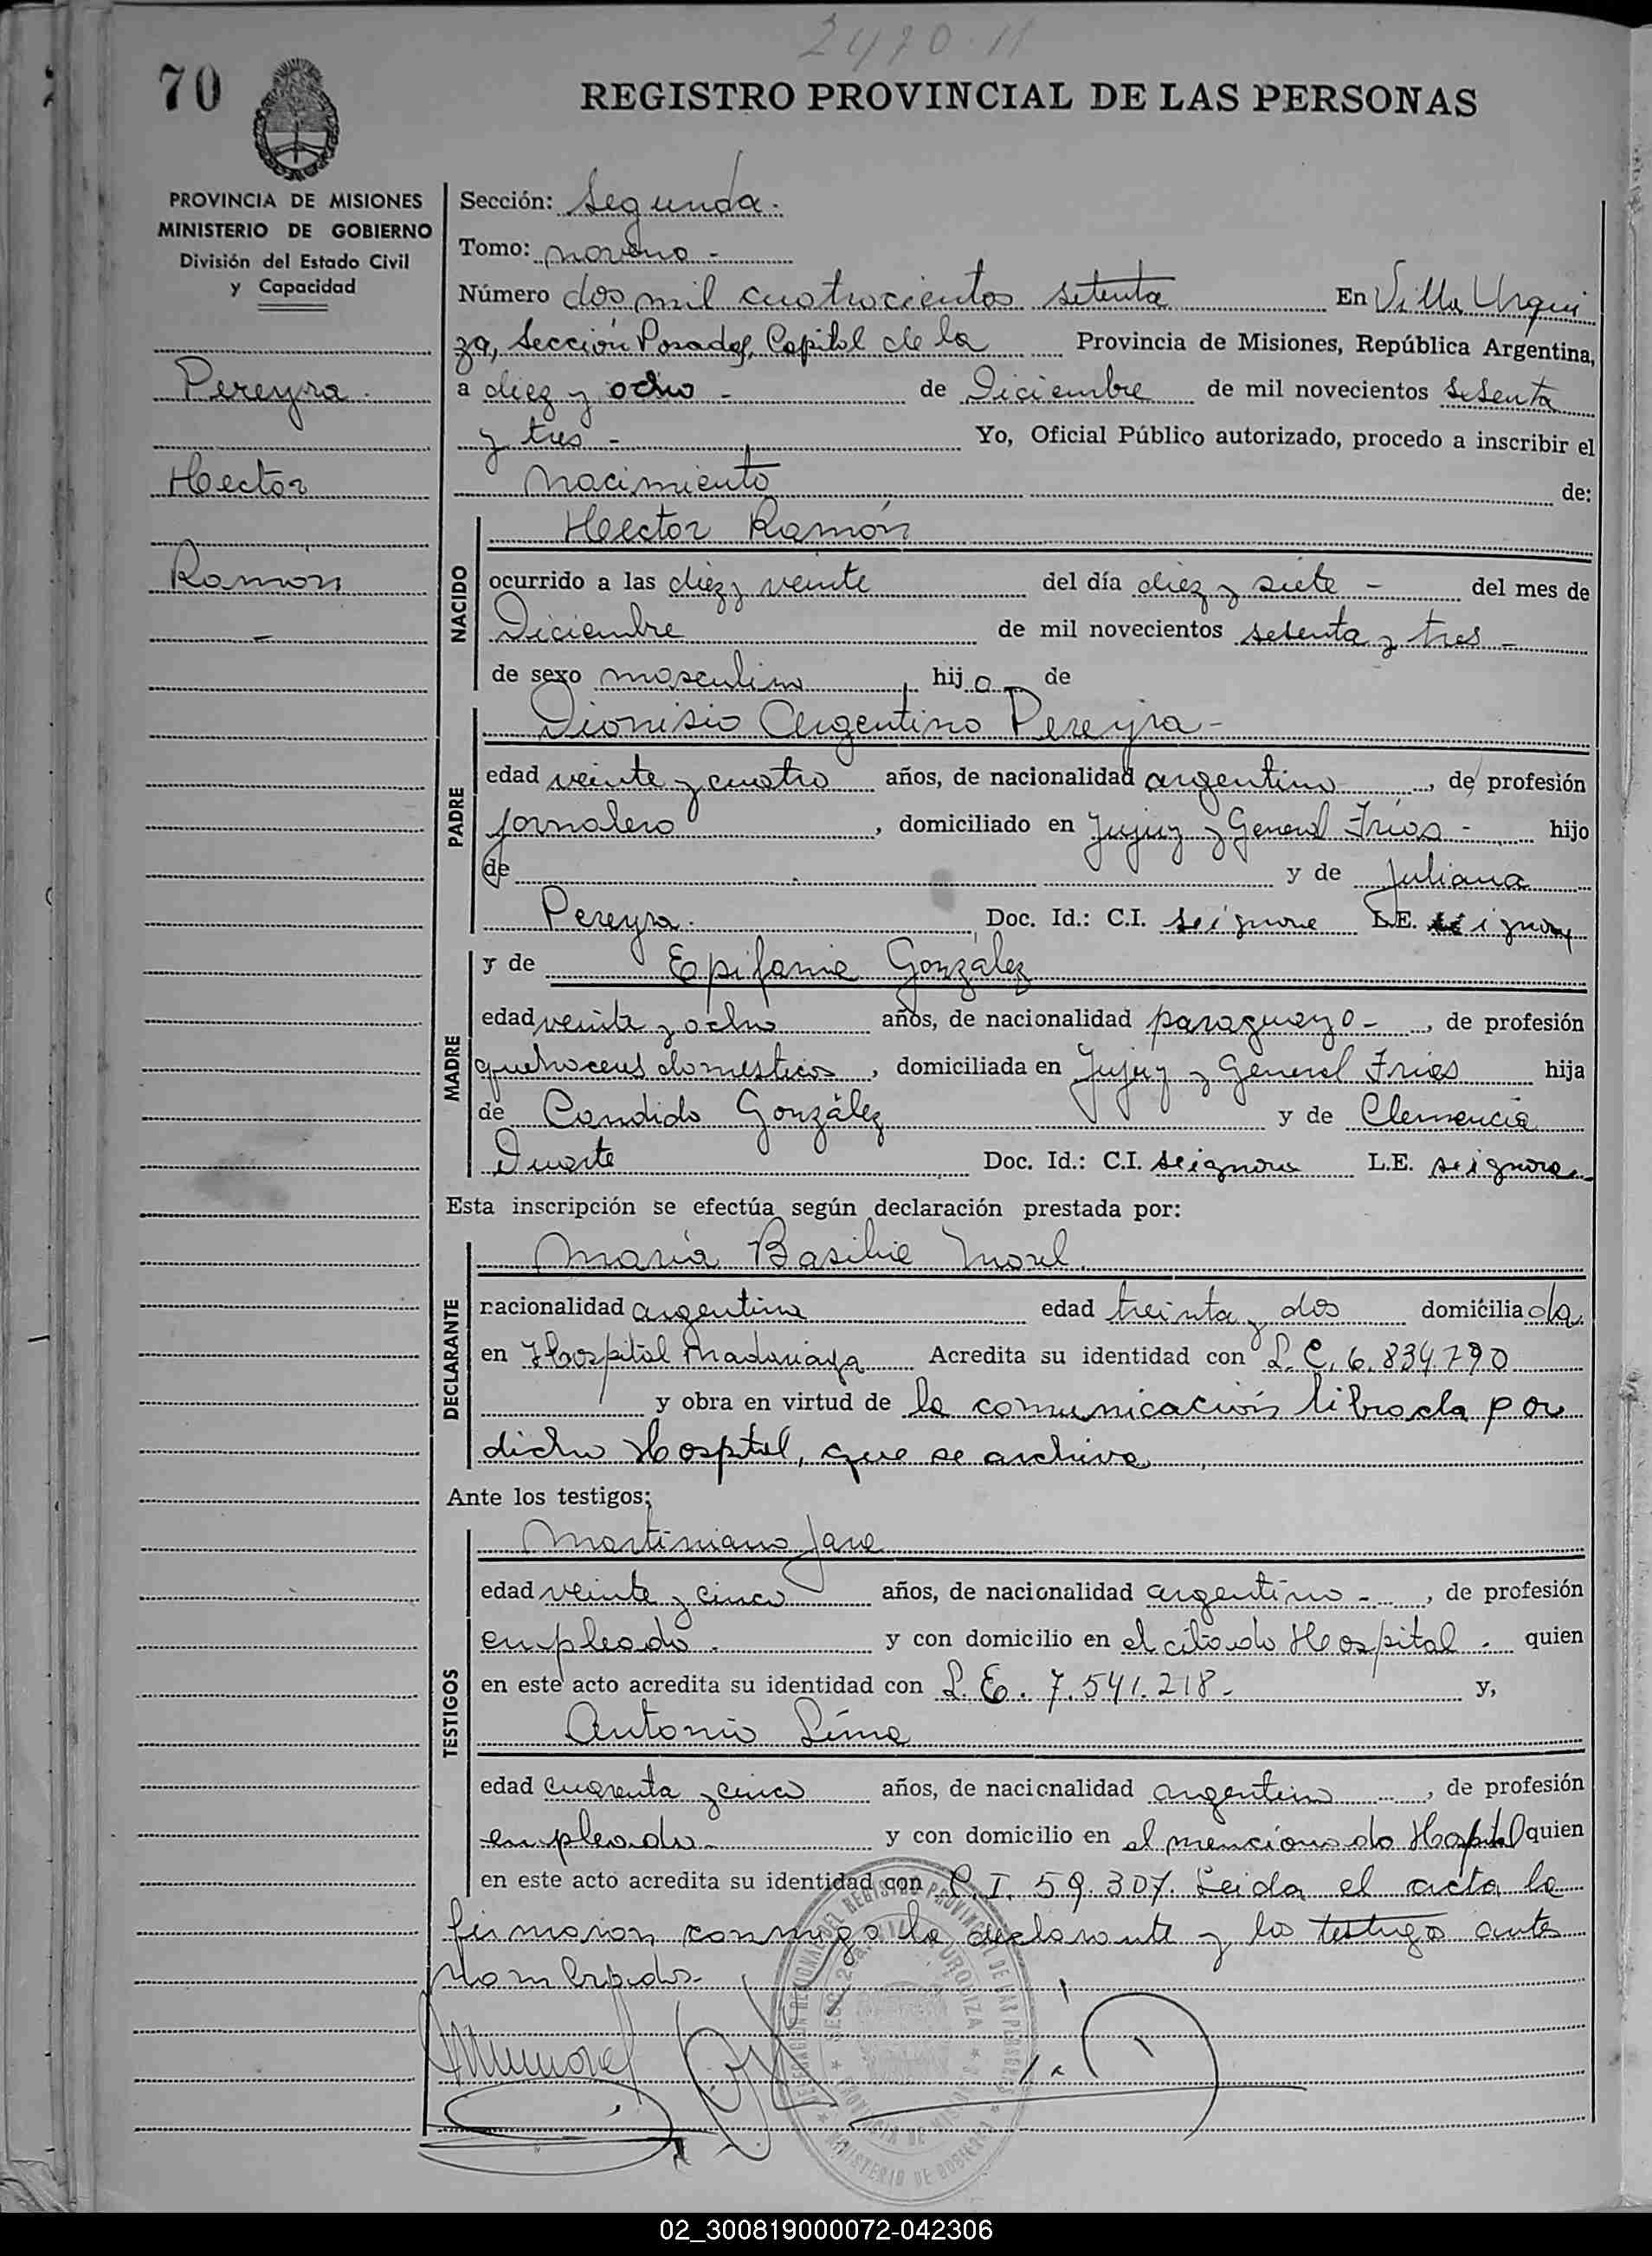 2470-11
70
REGISTRO PROVINCIAL DE LAS PERSONAS
PROVINCIA DE MISIONES
MINISTERIO DE GOBIERNO
División del Estado Civil
y Capacidad
Pereyra.
Hector
Ramón
-
Sección: Segunda.
Tomo: noveno -
Número dos mil cuatrocientos setenta En Villa Urqui
za, Sección Posadas, Capital de la Provincia de Misiones, República Argentina,
a diez y ocho - de Diciembre de mil novecientos setenta
y tres - Yo, Oficial Público autorizado, procedo a inscribir el
nacimiento de:
NACIDO
Hector Ramón
ocurrido a las diez y veinte del día diez y siete - del mes de
Diciembre de mil novecientos setenta y tres -
de sexo masculino, hijo de
PADRE
Dionisio Argentino Pereyra -
edad veinte y cuatro años, de nacionalidad argentino, de profesión
jornalero, domiciliado en Jujuy y General Frias - hijo
de y de Juliana
Pereyra. Doc. Id.: C.I. se ignora L.E. se ignora
MADRE
y de Epifania González
edad veinte y ocho años, de nacionalidad paraguaya -, de profesión
quehaceres domesticos, domiciliada en Jujuy y General Frias hija
de Candido González y de Clemencia
Duarte Doc. Id.: C.I. se ignora L.E. se ignora
Esta inscripción se efectúa según declaración prestada por:
DECLARANTE
María Basilia Morel
nacionalidad argentina edad treinta y dos domiciliada
en Hospital Madariaga Acredita su identidad con L.C. 6.834.790
y obra en virtud de la comunicación librada por
dicho Hospital, que se archiva
Ante los testigos:
TESTIGOS
Martiniano Jara
edad veinte y cinco años, de nacionalidad argentino -, de profesión
empleado. y con domicilio en el citado Hospital - quien
en este acto acredita su identidad con L.E. 7.541.218 - y,
Antonio Lima
edad cuarenta y cinco años, de nacionalidad argentino, de profesión
empleado - y con domicilio en el mencionado Hospital quien
en este acto acredita su identidad con C.I. 59.307. Leida el acta la
firmaron conmigo la declarante y los testigos antes
nombrados -
DELEGACION REGIONAL DEL REGISTRO PROVINCIAL DE LAS PERSONAS
SECC. 2da. VILLA URQUIZA
PROVINCIA DE MISIONES
MINISTERIO DE GOBIERNO
02_300819000072-042306